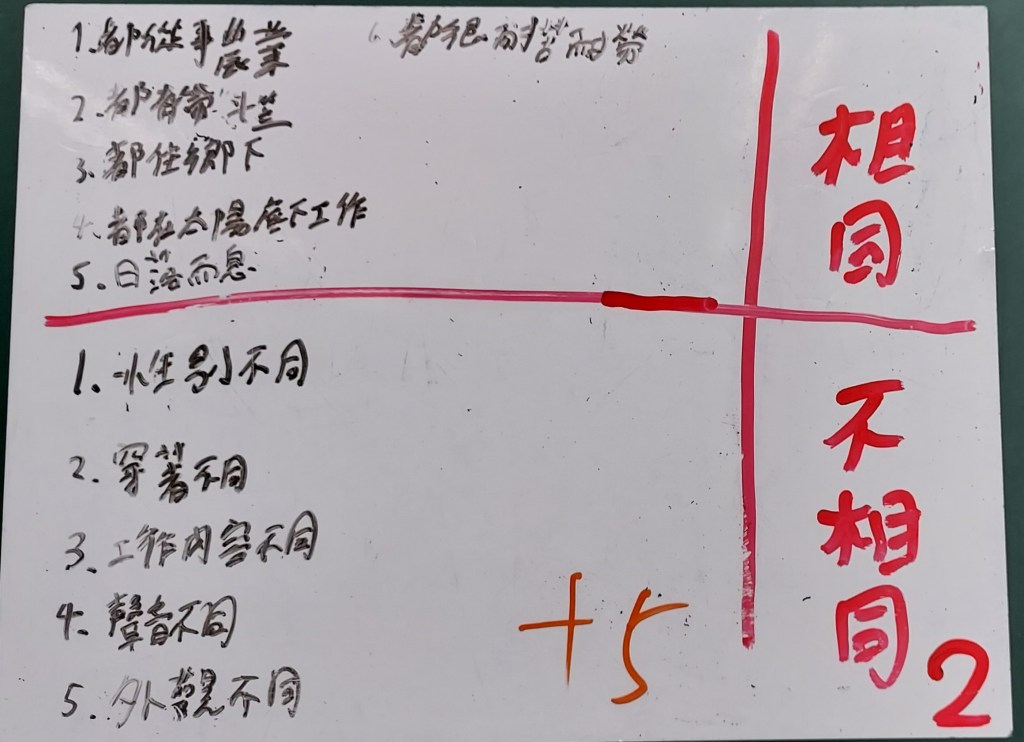 1.都從事農業
6.都很耐苦耐勞
2.都有帶斗笠
3.都住鄉下
4.都在太陽底下工作
5.日落而息
相同
1.性別不同
2.穿著不同
3.工作內容不同
4.聲音不同
5.外觀不同
不相同
+5
2